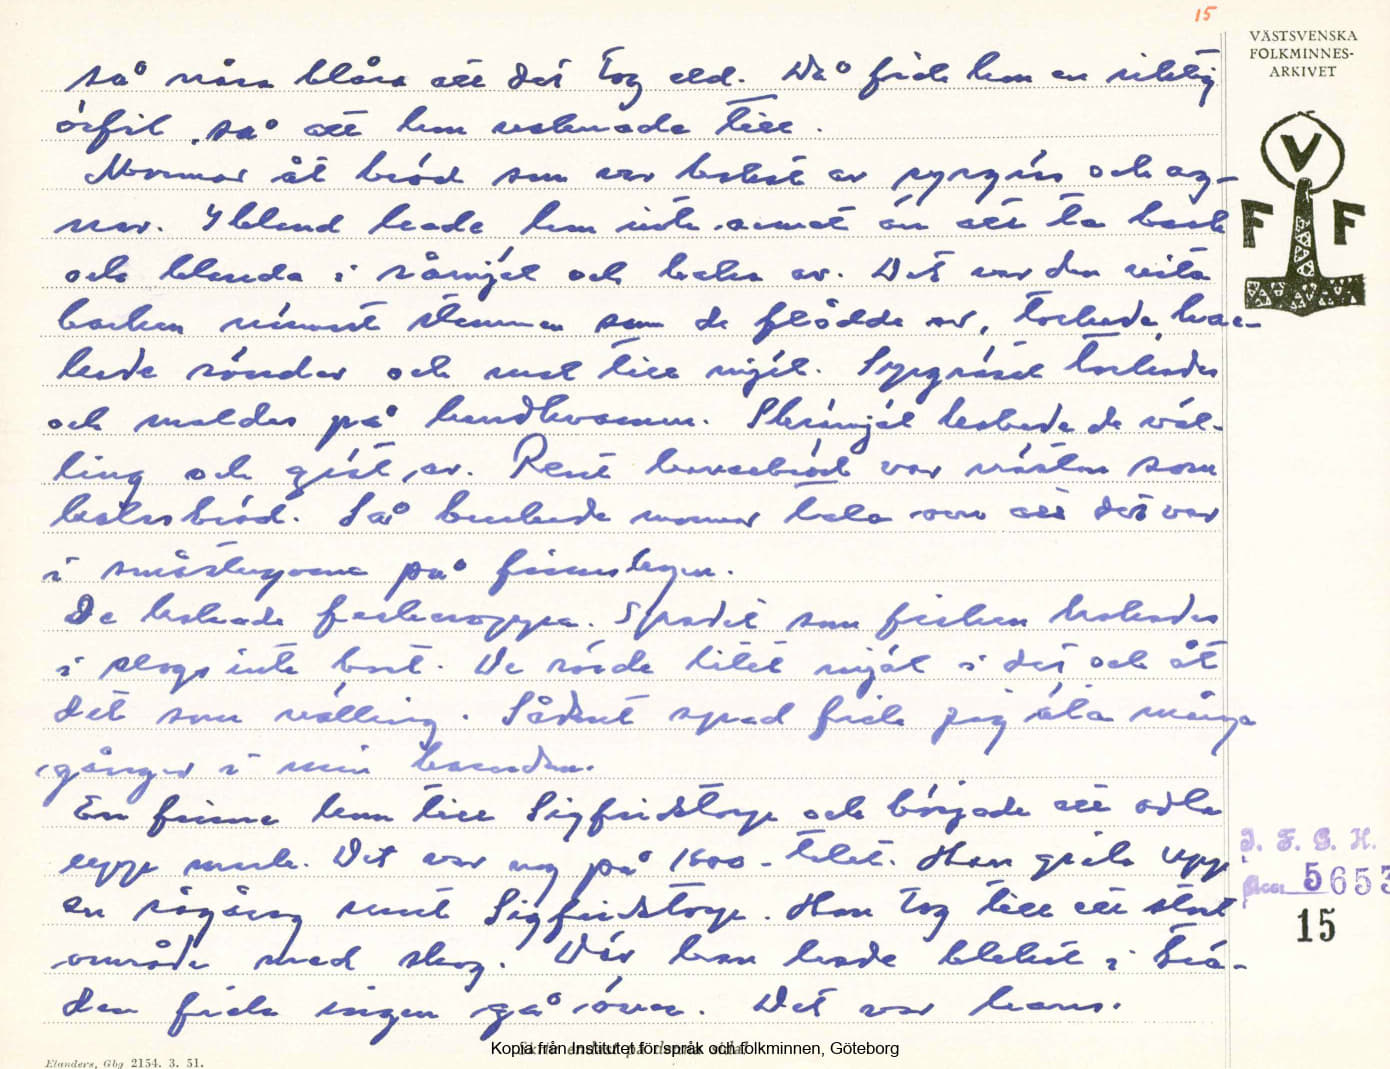 15
VÄSTSVENSKA
FOLKMINNES-
ARKIVET
V
F F
så nära blåra att det tog eld. Då fick hon en riktig
örfil, så att hon vaknade till.
Mormor åt bröd som var bakat av syrgräs och ag-
nar. Ibland hade hon inte annat än att ta bark
och blanda i råmjöl och baka av. Det var den vita
barken närmast stammen som de flådde av, torkade, hac-
kade sönder och mol till mjöl. Syrgräset torkades
och maldes på handkvarnen. Skrämjöl kokade de väl-
ling och gröt av. Rent kornbröd var nästan som
kalasbröd. Så brukade mormor tala om att det var
i småstugorna på finnskogen.
De kokade fisksoppa. Spadet som fisken kokades
i slogs inte bort. De rörde litet mjöl i det och åt
det som välling. Sådant spad fick jag äta många
gånger i min barndom.
En finne kom till Sigfridstorp och började att odla
upp mark. Det var nog på 1600-talet. Han gick upp
en rågång runt Sigfridstorp. Han tog till ett stort
område med skog. Där han hade bläkat i trä-
den fick ingen gå över. Det var hans.
I. F. G. H.
Acc. 5653
15
Elanders, Gbg 2154. 3. 51.
Kopia från Institutet för språk och folkminnen, Göteborg